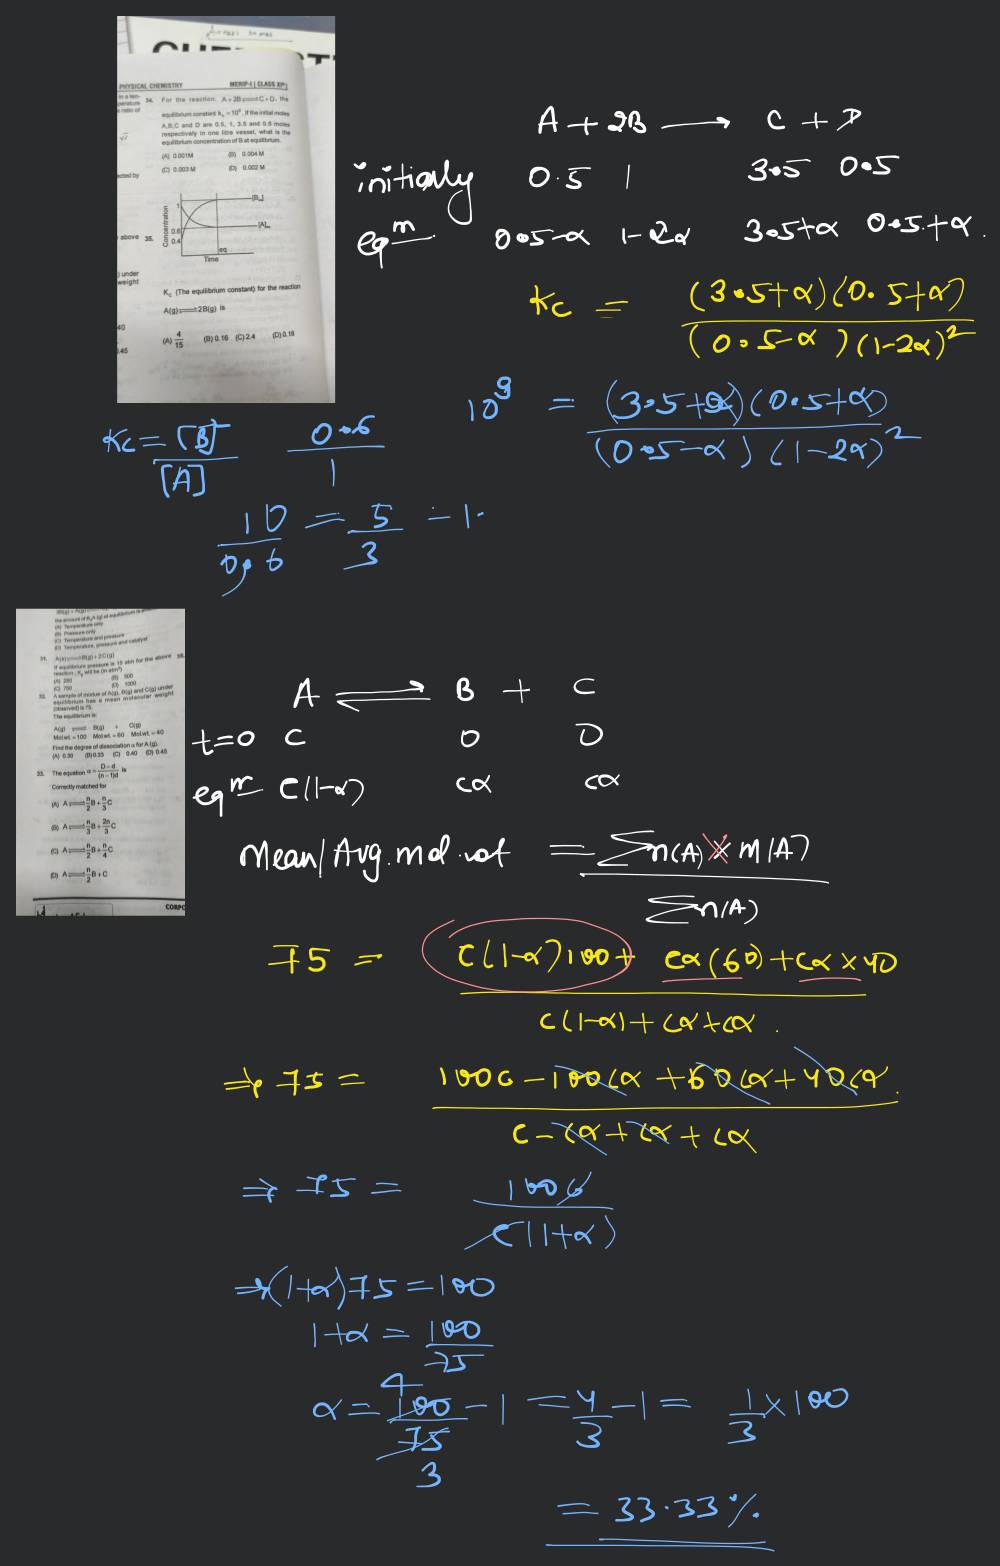 PHYSICAL CHEMISTRY
MERIP-I [ CLASS XI
34. For the reaction: A+2B⇌C+D, the
equilibrium constant k꜀ = 10⁹. If the initial moles
A,B,C and D are 0.5, 1, 3.5 and 0.5 moles
respectively in one litre vessel, what is the
equilibrium concentration of B at equilibrium.
(A) 0.001M (B) 0.004 M
(C) 0.003 M (D) 0.002 M
35.
Concentration
1
0.6
0.4
[A]
eq
Time
K꜀ (The equilibrium constant) for the reaction
A(g)⇌2B(g) is
(A) 4/15 (B) 0.16 (C) 2.4 (D) 0.18
A + 2B ⟶ C + D
initially 0.5 1 3.5 0.5
eqᵐ 0.5-α 1-2α 3.5+α 0.5+α.
Kc = (3.5+α)(0.5+α) / (0.5-α)(1-2α)²
10⁹ = (3.5+α)(0.5+α) / (0.5-α)(1-2α)²
Kc = [B] / [A] 0.6 / 1
10 / 0.6 = 5 / 3 - 1.
(A) Temperature only
(B) Pressure only
(C) Temperature and pressure
(D) Temperature, pressure and catalyst
31.
If equilibrium pressure is 15 atm for the above
(D) 1000
32. A sample of mixture of A(g), B(g) and C(g) under
equilibrium has a mean molecular weight
(observed) is 75.
The equilibrium is:
A(g) ⇌ B(g) + C(g)
Mol.wt. = 100 Mol.wt. = 60 Mol.wt. = 40
Find the degree of dissociation α for A (g).
(A) 0.30 (B) 0.33 (C) 0.40 (D) 0.45
33. The equation α = D-d / (n-1)d is
Correctly matched for
(A) A⇌n/2 B+n/3 C
(B) A⇌n/3 B+2n/3 C
(C) A⇌n/2 B+n/4 C
(D) A⇌n/2 B+C
CORPO
A ⇌ B + C
t=0 C 0 0
eqᵐ C(1-α) cα cα
Mean/Avg.mol.wt = Σn(A) × M(A) / Σn(A)
75 = C(1-α)100 + cα(60) + cα×40 / C(1-α) + cα + cα.
⇒ 75 = 100C - 100cα + 60cα + 40cα / C - cα + cα + cα
⇒ 75 = 100C / C(1+α)
⇒(1+α)75 = 100
1+α = 100 / 75
α = 100 / 75 - 1 = 4/3 - 1 = 1/3 × 100
4
3
= 33.33%.